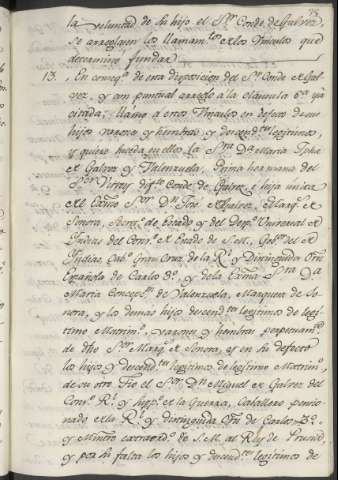 la voluntad de su hijo el S.or Conde de Galvez,
se arreglen los llamam.tos a los Vinculos que
determino fundar
13. En conseq.a de esta disposicion del S.or Conde de Gal-
vez, y con puntual arreglo a la clausula 6.a ya
citada, llamo a estos Vinculos en defecto de sus
hijos varones y hembras, y descend.tes legitimos,
y quiero suceda en ellos la S.ra D.a Maria Josefa
de Galvez y Valenzuela, Prima hermana del
S.or Virrey dif.to Conde de Galvez, e hija unica
del S.or D.n Jose de Galvez, Marq.s de
Sonora, Secret.o de Estado y del Desp.o Universal de
Indias del Cons.o de Estado de S.M., Gob.or del de
Indias, Cab.o Gran Cruz de la R.l y Distinguida Orn
Española de Carlos 3.o y de la S.ra D.a
Maria Concep.on de Valenzuela, Marquesa de So-
nora, y los demas hijos descend.tes legitimos de legi-
timo Matrim.o, varones y hembras perpetuam.te
de dho S.or Marq.s de Sonora, y en su defecto
los hijos y descend.tes legitimos de legitimo Matrim.o,
de su otro tio el S.or D.n Miguel de Galvez del
Cons.o R.l y sup.o de la Guerra, Caballero pensio-
nado de la R.l y distinguida Orn de Carlos 3.o
y Mintro extraord.o de S.M. al Rey de Prusia,
y por su falta los hijos y descend.tes legitimos de